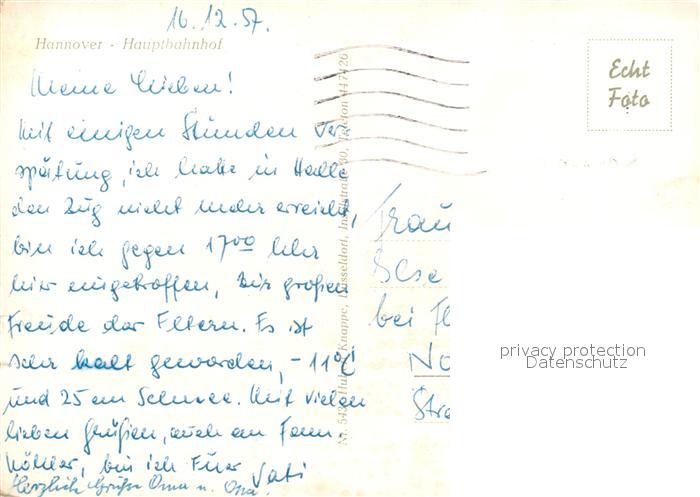 16.12.57.
Hannover - Hauptbahnhof
Meine Lieben!
Mit einigen Stunden Ver-
spätung, ich hatte in Halle
den Zug nicht mehr erreicht,
bin ich gegen 17 00 Uhr
hier eingetroffen, zur großen
Freude der Eltern. Es ist
sehr kalt geworden, - 11°C
und 25 cm Schnee. Mit vielen
lieben Grüßen, auch an Fam.
Köhler, bin ich Euer Vati
Herzliche Grüße Oma u. Opa.
Knappe, Düsseldorf,
Echt
Foto
Frau
Else
bei
No
Stra
privacy protection
Datenschutz